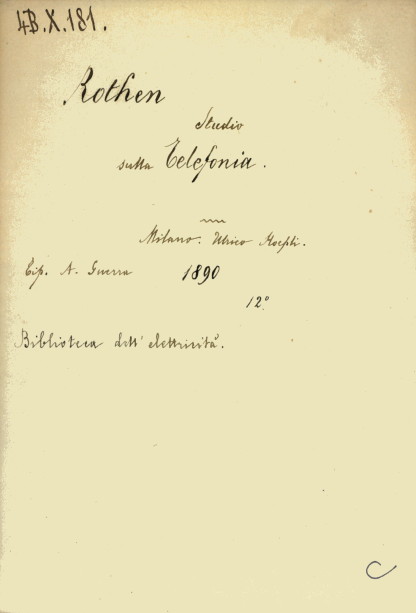 4B.X.181.
Rothen
Studio
sulla Telefonia.
Milano. Ulrico Hoepli.
Tip. A. Guerra 1890
12º
Biblioteca dell' elettricità.
C